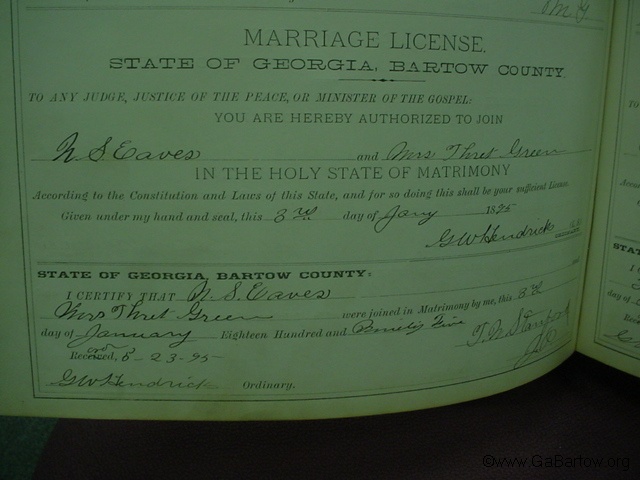 MARRIAGE LICENSE.
STATE OF GEORGIA, BARTOW COUNTY.
TO ANY JUDGE, JUSTICE OF THE PEACE, OR MINISTER OF THE GOSPEL:
YOU ARE HEREBY AUTHORIZED TO JOIN
N S Eaves and Mrs Thret Green
IN THE HOLY STATE OF MATRIMONY
According to the Constitution and Laws of this State, and for so doing this shall be your sufficient License.
Given under my hand and seal, this 3rd day of Jany 1895
GW Hendrick
STATE OF GEORGIA, BARTOW COUNTY:
I CERTIFY THAT N. S. Eaves
Mrs Thret Green were joined in Matrimony by me, this 3rd
day of January Eighteen Hundred and Ninety Five
Received, 5-23-95
GW Hendrick Ordinary.
©www.GaBartow.org